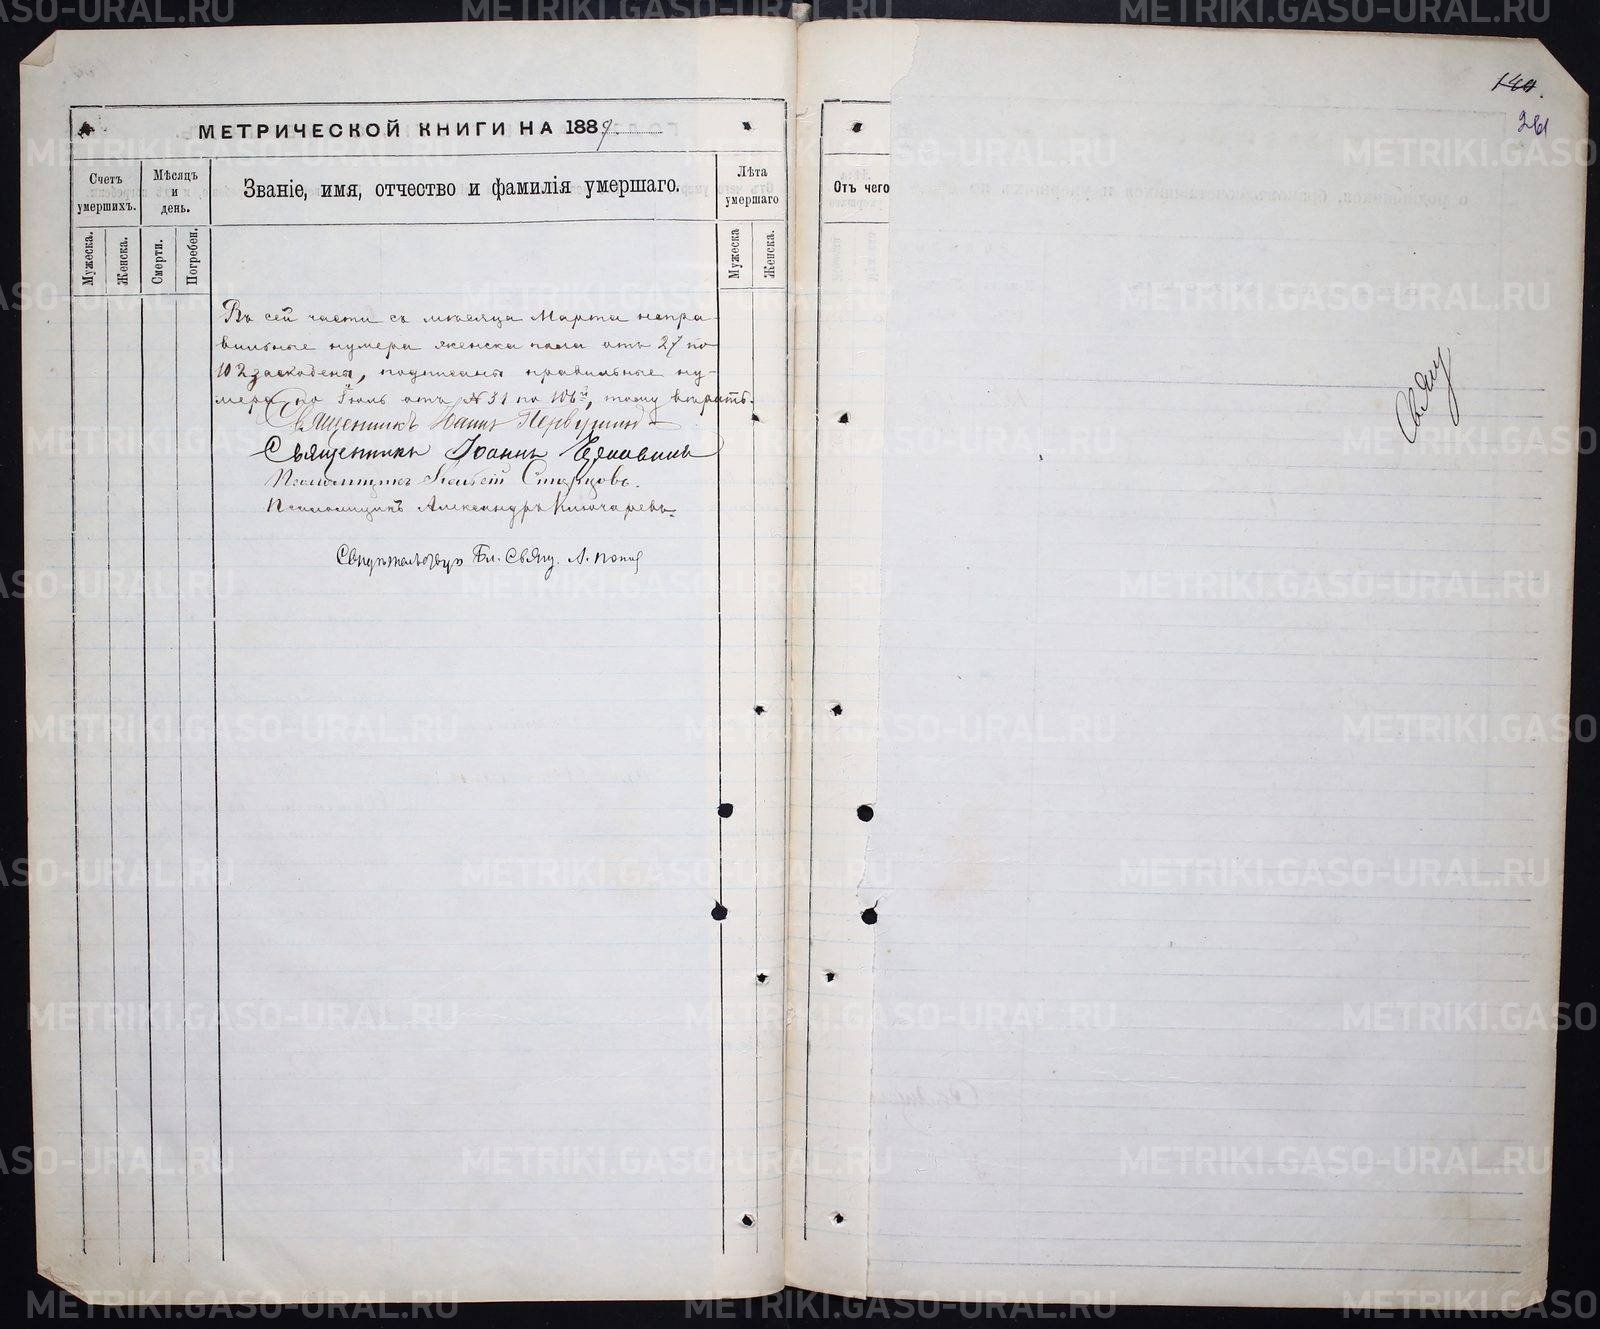 МЕТРИЧЕСКОЙ КНИГИ НА 1889.
Счетъ умершихъ.
Мѣсяцъ и день.
Званіе, имя, отчество и фамилія умершаго.
Лѣта умершаго
Мужеска.
Женска.
Смерти.
Погребен.
Мужеска
Женска.
Въ сей части съ мѣсяца Марта непра-
вильные нумера женска пола отъ 27 по
102 заскоблены, подписаны правильные ну-
мера по Іюль отъ №31 по 106й, тому вѣрить.
Священникъ Іоаннъ Первушинъ
Священникъ Іоаннъ
Псаломщикъ Старцовъ.
Псаломщикъ Александръ Ключаревъ.
Свидѣтельствую Бл. Свящ. А. Поповъ
Отъ чего
140.
261
Свящ
METRIKI.GASO-URAL.RU